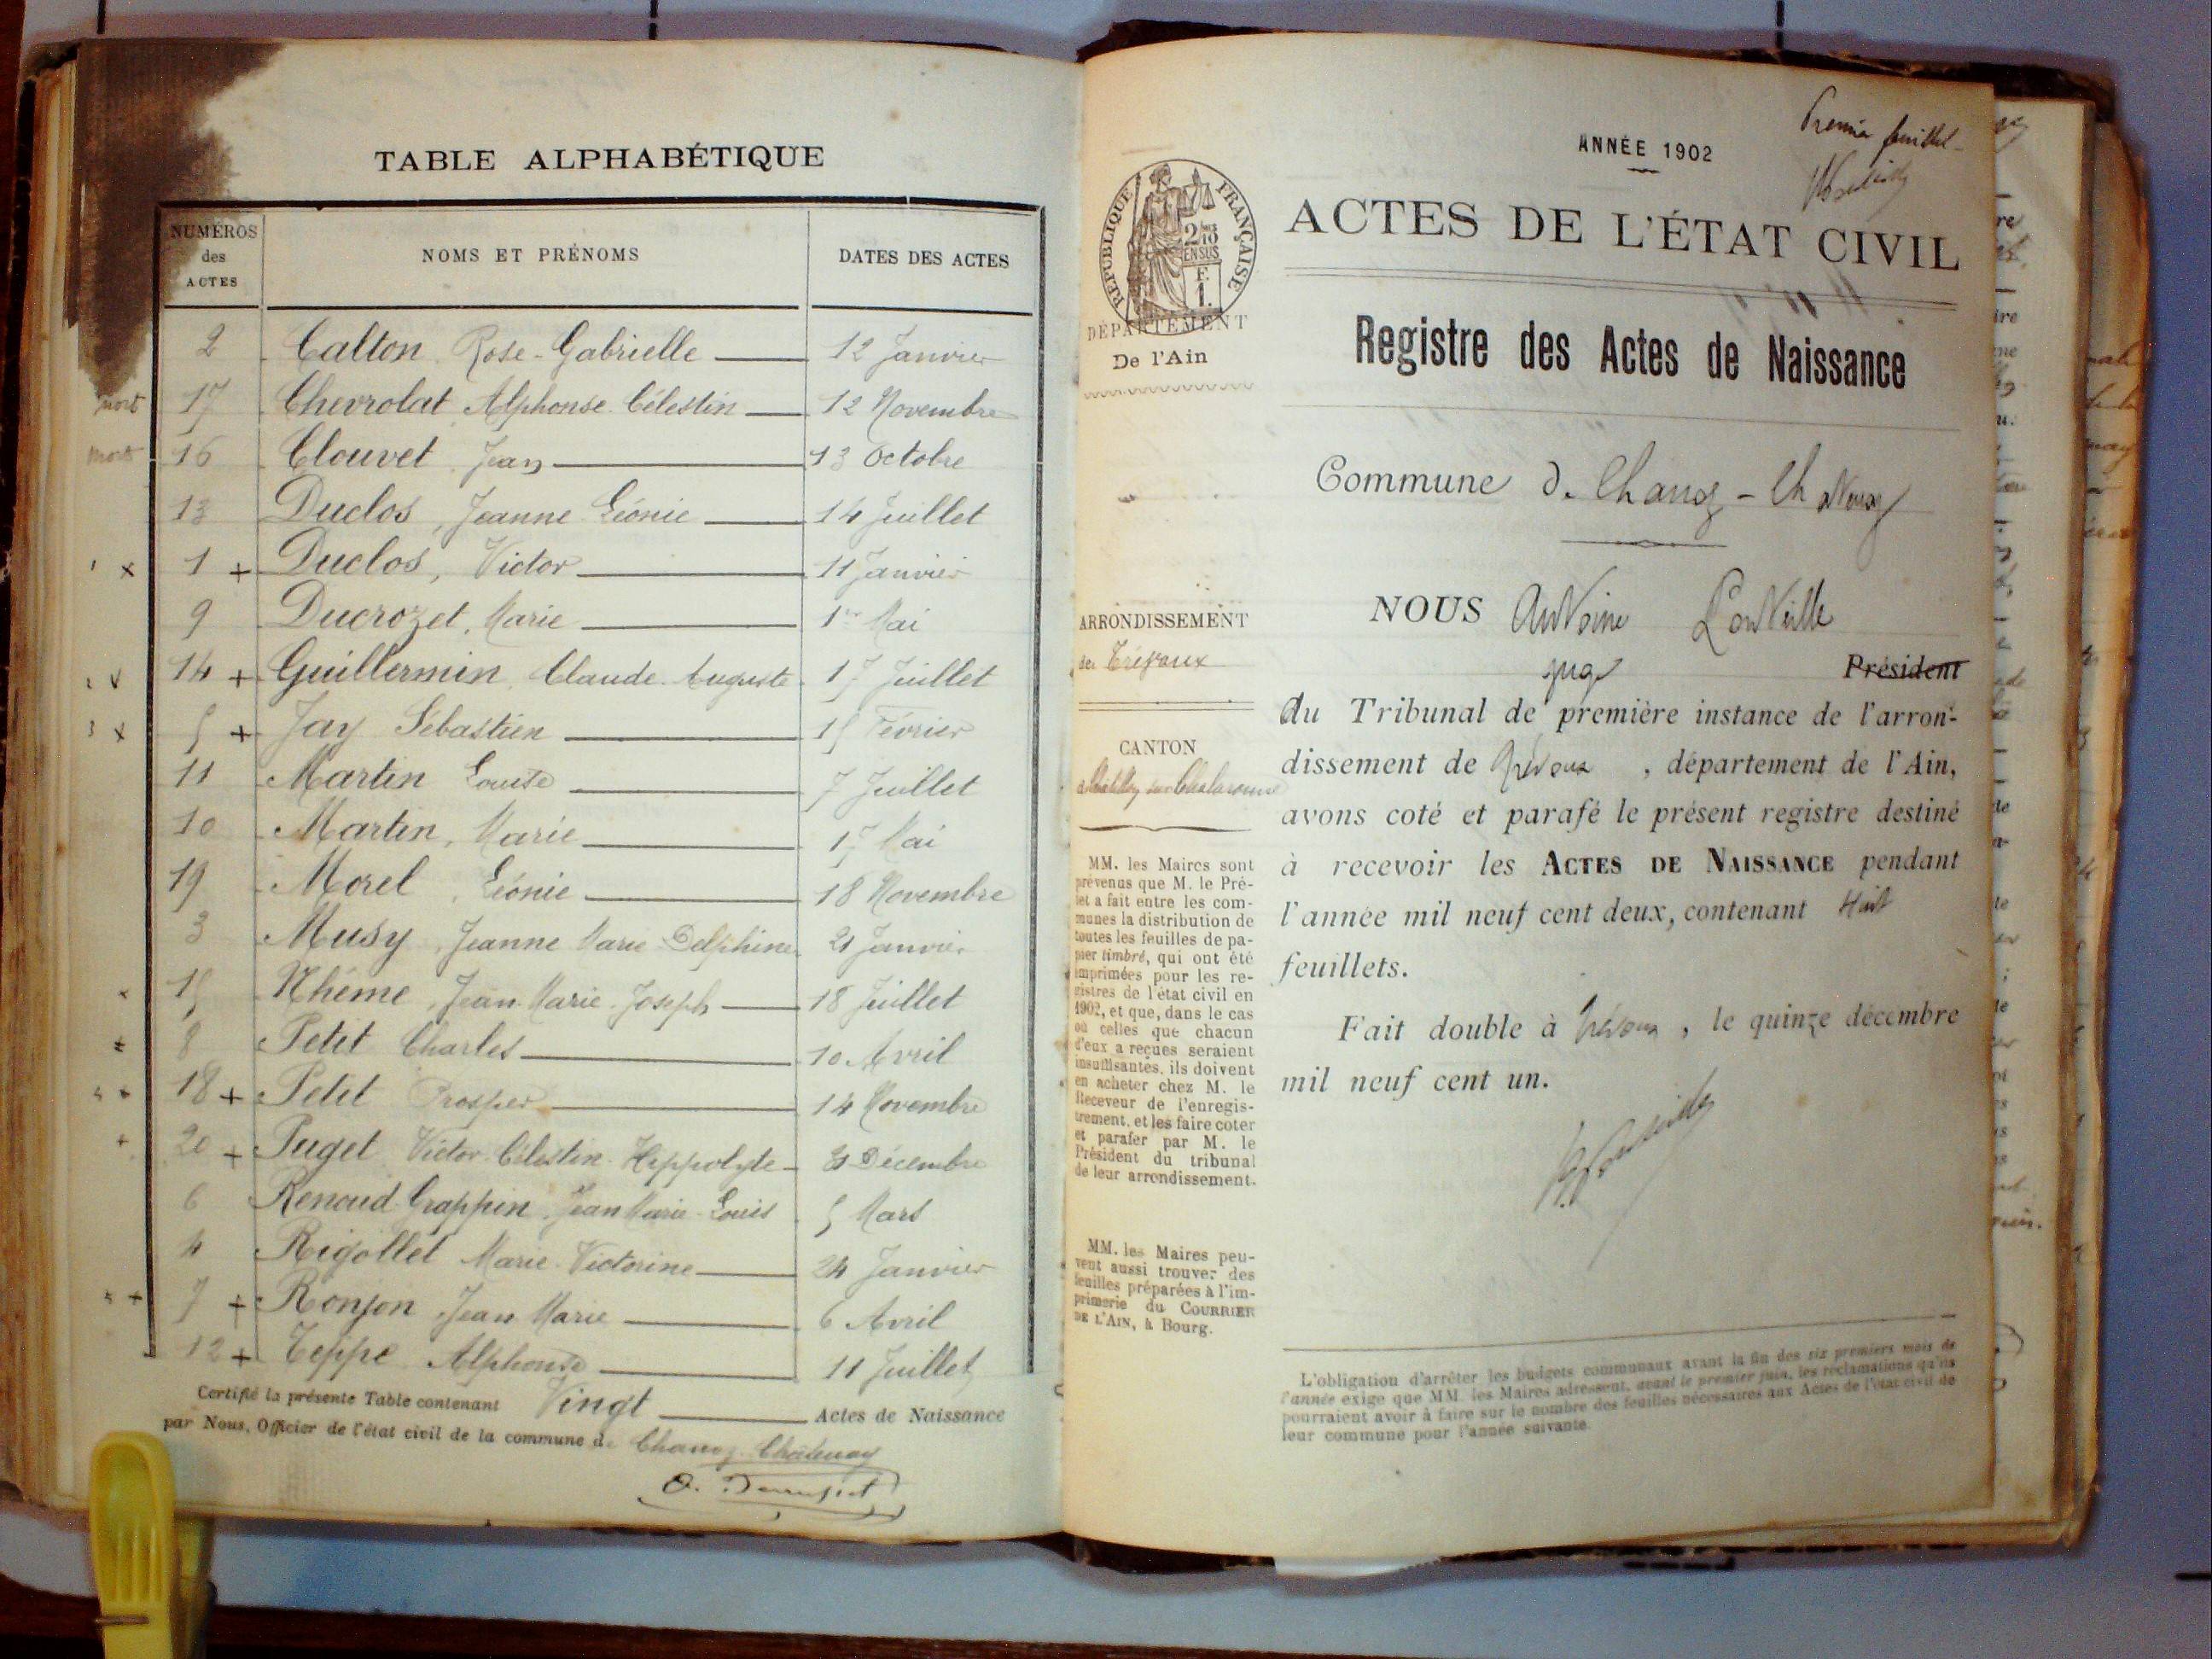 TABLE ALPHABÉTIQUE
NUMÉROS des ACTES NOMS ET PRÉNOMS DATES DES ACTES
2 Calton Rose-Gabrielle 12 Janvier
mort 17 Chevrolat Alphonse Célestin 12 Novembre
mort 16 Clouvet Jean 13 Octobre
13 Duclos, Jeanne Léonie 14 Juillet
1 x 1 + Duclos, Victor 11 Janvier
9 Ducrozet, Marie 1er Mai
14 + Guillermin Claude Auguste 17 Juillet
3 x 5 + Jay Sébastien 15 Février
11 Martin Louise 7 Juillet
10 Martin, Marie 17 Mai
19 Morel, Léonie 18 Novembre
3 Musy, Jeanne Marie Delphine 21 Janvier
x 15 Nhême, Jean-Marie-Joseph 18 Juillet
8 Petit Charles 10 Avril
18 + Petit Prosper 14 Novembre
+ 20 + Puget Victor Célestin Hippolyte Décembre
6 Renoud-Grappin Jean Marie-Louis 5 Mars
4 Rigollet Marie-Victorine 24 Janvier
7 + Ronjon Jean Marie 6 Avril
12 + Teppe Alphonse 11 Juillet
Certifié la présente Table contenant Vingt Actes de Naissance
par Nous, Officier de l'état civil de la commune de Chanoz-Châtenay
Premier feuillet
ANNÉE 1902
ACTES DE L'ÉTAT CIVIL
RÉPUBLIQUE FRANÇAISE
2/10 EN SUS
F. 1.
DÉPARTEMENT
De l'Ain
Registre des Actes de Naissance
Commune de Chanoz-Chatenay
ARRONDISSEMENT
de Trévoux
CANTON
de Châtillon sur Chalaronne
MM. les Maires sont
prévenus que M. le Pré-
fet a fait entre les com-
munes la distribution de
toutes les feuilles de pa-
pier timbré, qui ont été
imprimées pour les re-
gistres de l'état civil en
1902, et que, dans le cas
où celles que chacun
d'eux a reçues seraient
insuffisantes, ils doivent
en acheter chez M. le
Receveur de l'enregis-
trement, et les faire coter
et parafer par M. le
Président du tribunal
de leur arrondissement.
MM. les Maires peu-
vent aussi trouver des
feuilles préparées à l'im-
primerie du COURRIER
DE L'AIN, à Bourg.
NOUS Antoine
juge Président
du Tribunal de première instance de l'arron-
dissement de Trévoux, département de l'Ain,
avons coté et parafé le présent registre destiné
à recevoir les ACTES DE NAISSANCE pendant
l'année mil neuf cent deux, contenant Huit
feuillets.
Fait double à Trévoux, le quinze décembre
mil neuf cent un.
L'obligation d'arrêter les budgets communaux avant la fin des six premiers mois de
l'année exige que MM. les Maires adressent, avant le premier juin, les réclamations qu'ils
pourraient avoir à faire sur le nombre des feuilles nécessaires aux Actes de l'état civil de
leur commune pour l'année suivante.